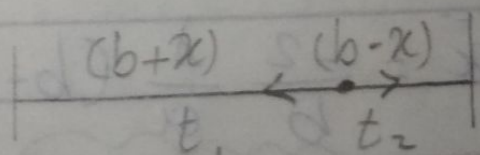 (b+x) (b-x)
t₁ t₂